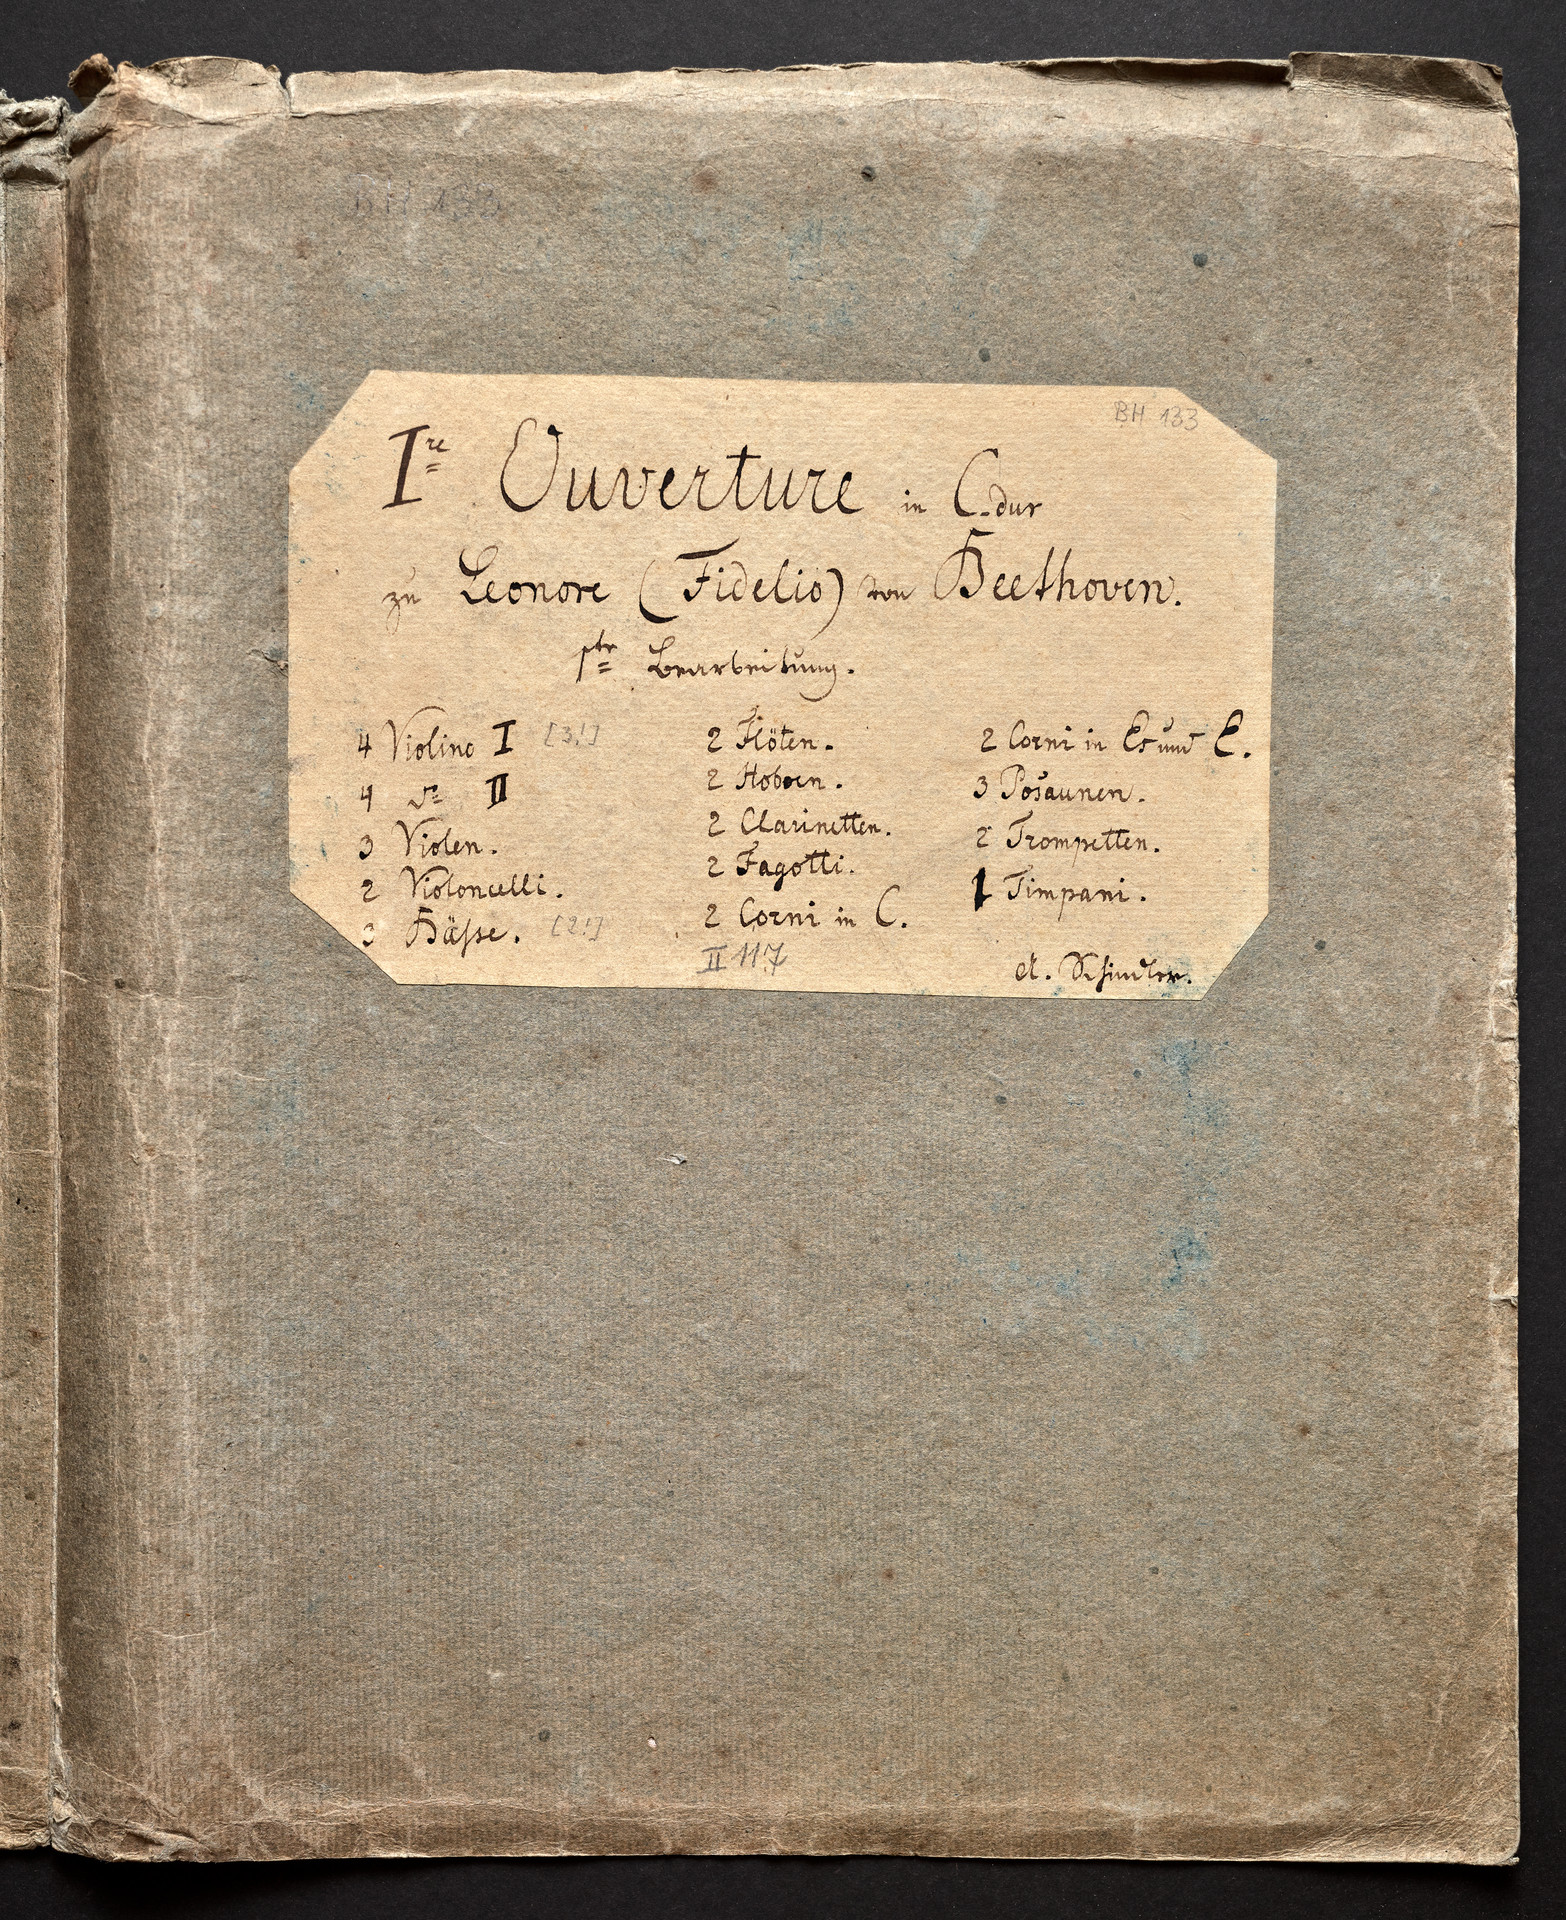 BH 133
BH 133
I^re Ouverture in C-dur
zu Leonore (Fidelio) von Beethoven.
1^te Bearbeitung.
4 Violino I [3!]
4 d^o II
3 Violen.
2 Violoncelli.
3 Bässe. [2!]
2 Flöten.
2 Hoboen.
2 Clarinetten.
2 Fagotti.
2 Corni in C.
II 117
2 Corni in Es und E.
3 Posaunen.
2 Trompetten.
1 Timpani.
A. Schindler.